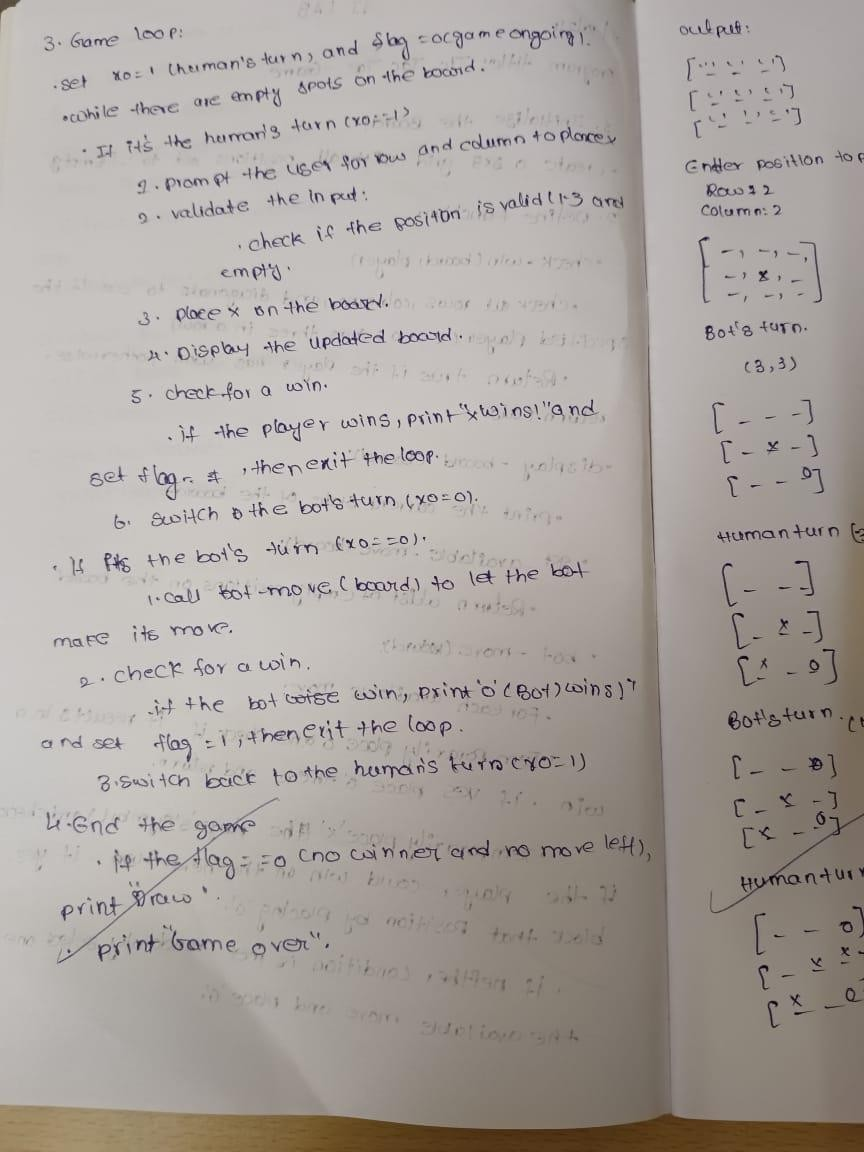 3. Game loop:
. set xo=1 (human's turn) and flag =0(game ongoing).
. while there are empty spots on the board.
. If it's the human's turn (xo==1)
1. prompt the user for row and column to place x
2. validate the input:
. check if the position is valid (1-3 and
empty.
3. place x on the board.
4. Display the updated board.
5. check for a win.
. if the player wins, print "x wins!" and
set flag = 1, then exit the loop.
6. switch the bot's turn (xo=0).
. If it's the bot's turn (xo==0).
1. call bot-move (board) to let the bot
make its move.
2. check for a win.
. if the bot win, print 'o' (Bot) wins)"
and set flag = 1, then exit the loop.
3. switch back to the human's turn (xo=1)
4. End the game
. if the flag = =0 (no winner and no move left),
print "Draw".
. print "Game over".
output:
['-' '-' '-']
['-' '-' '-']
['-' '-' '-']
Enter position to p
Row: 2
Column: 2
[-, -, -,
-, x, -
-, -, -]
Bot's turn.
(3,3)
[- - -]
[- x -]
[- - o]
Human turn (3
[- - -]
[- x -]
[x - o]
Bot's turn. (1
[- - o]
[- x -]
[x - o]
Human tur
[- - o]
[- x x
[x - o